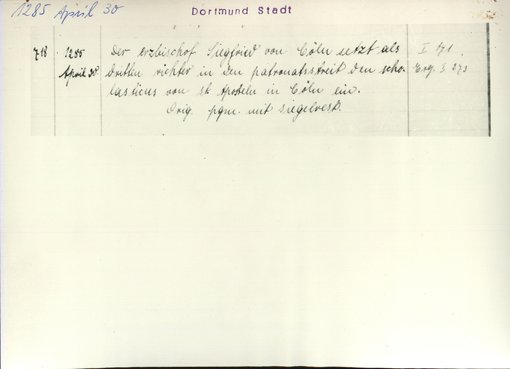 1285 April 30
Dortmund Stadt
718 1285 Der Erzbischof Siegfried von Cöln setzt als I 171
April 30 dritten richter in den patronatsstreit den scho- Erg. I 273
lasticus von St. Aposteln in Cöln ein.
Orig. pgm. mit siegelrest.